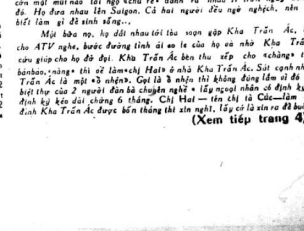 còn một mũi nào tới ngộ
đó. Họ đưa nhau lên Saigon. Cả hai người đều ngô nghịch, nên
biết làm gì để sinh sống...
Một bữa nọ, họ dắt nhau tới tòa soạn gặp Kha Trấn Ác,
cho ATV nghe, bước đường tình ái éo le của họ và nhờ Kha Trấ
cứu giúp cho họ đỡ đọi. Kha Trấn Ác bèn thu xếp cho «chàng»
bánbáo, «nàng» thì về làm «chị Hai» ở nhà Kha Trấn Ác. Sát cạnh nh
Trấn Ác là một «ổ nhện». Gọi là ổ nhện thì không đúng lắm vì đó
biệt thự của 2 người đàn bà chuyên nghề « lấy ngoại nhân có định kỳ
định kỳ kéo dài chừng 6 tháng. Chị Hai — tên thị là Cúc—làm
đình Kha Trấn Ác được bốn tháng thì xin nghỉ, lấy cớ là xin ra để buô
(Xem tiếp trang 4)